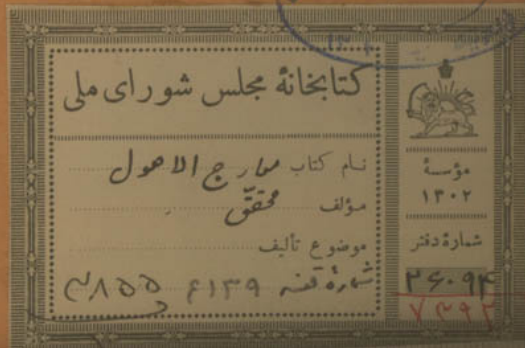 کتابخانهٔ مجلس شورای ملی
نام کتاب معارج الاصول
مؤلف محقق
موضوع تألیف
شمارهٔ قفسه ۶۱۳۹
مؤسسهٔ
۱۳۰۲
شمارهٔ دفتر
۲۶۰۹۴
۷۳۹۲